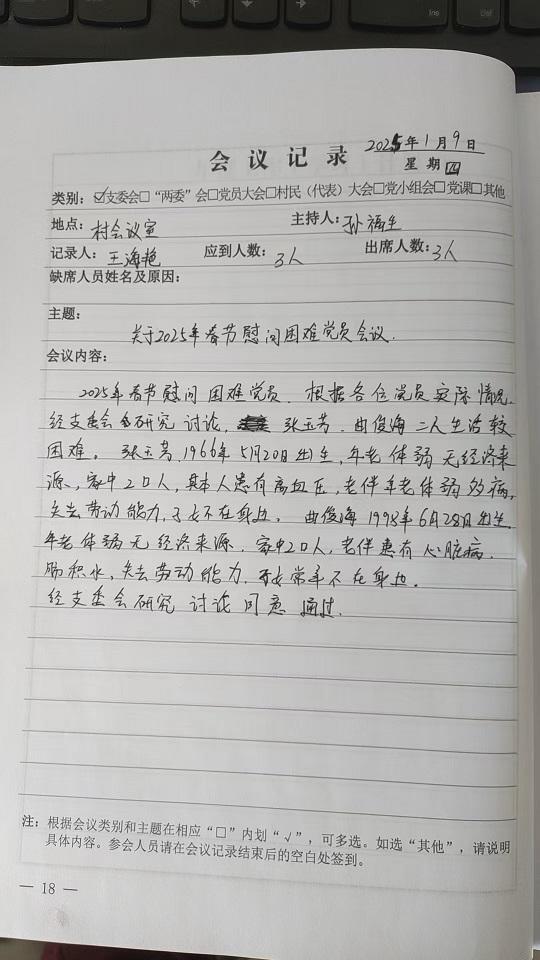 会议记录 2025年1月9日
星期四
类别：☑支委会□“两委”会□党员大会□村民（代表）大会□党小组会□党课□其他
地点：村会议室 主持人：孙福生
记录人：王海艳 应到人数：3人 出席人数：3人
缺席人员姓名及原因：
主题：
关于2025年春节慰问困难党员会议.
会议内容：
2025年春节慰问困难党员. 根据各位党员实际情况,
经支委会研究讨论, 张玉芳、曲俊海二人生活较
困难。张玉芳, 1966年5月20日出生, 年老体弱无经济来
源, 家中2口人, 其本人患有高血压, 老伴年老体弱多病,
失去劳动能力, 子女不在身边. 曲俊海1998年6月28日出生
年老体弱无经济来源. 家中2口人, 老伴患有心脏病.
肺积水, 失去劳动能力, 子女常年不在身边.
经支委会研究讨论同意通过.
注：根据会议类别和主题在相应“□”内划“√”，可多选。如选“其他”，请说明
具体内容。参会人员请在会议记录结束后的空白处签到。
— 18 —